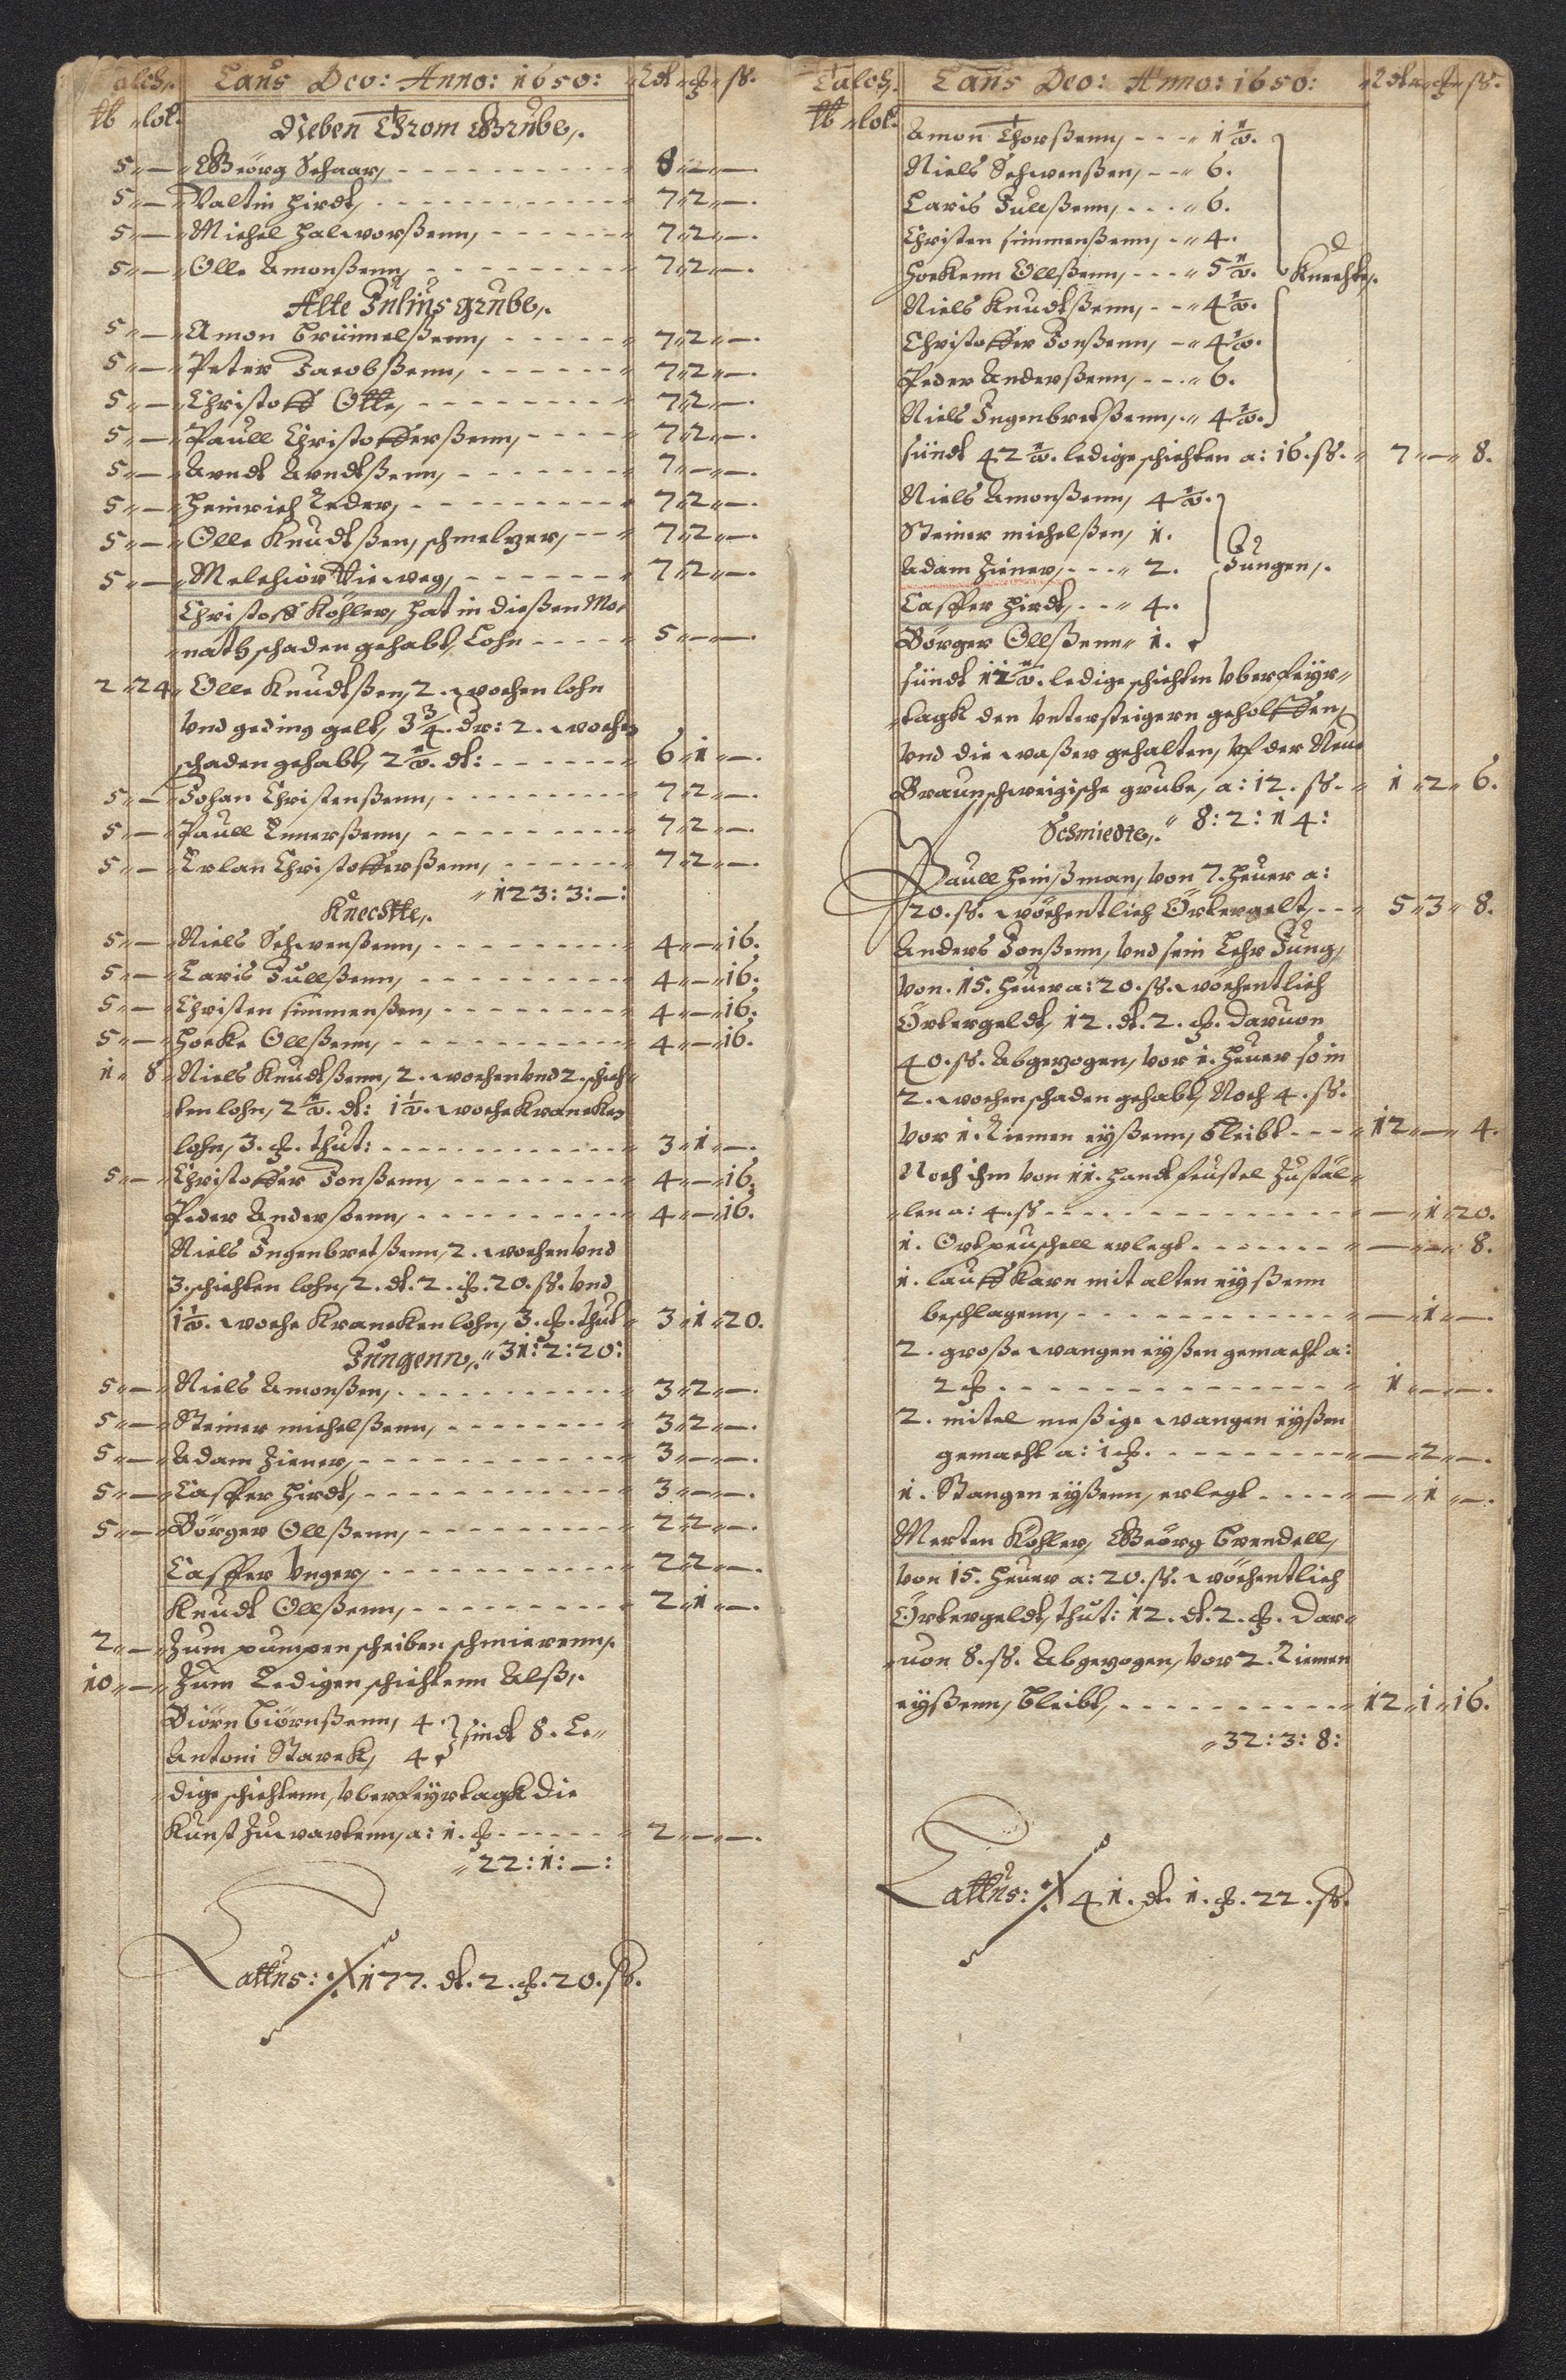 Talch,. Laus Deo: Anno: 1650: Rdt„ ₰„ ß.
℔ „ lot.
Neben Throm Grube,.
5„—„ Geörg Schaar, - - - „ 8„2„—.
5„—„ Valtin Hirdt, - - - „ 7„2„—.
5„—„ Michel Halworßenn, - - - „ 7„2„—.
5„—„ Olle Amonßenn, - - - „ 7„2„—.
Alte Julius grube,.
5„—„ Amon Trüimelßenn, - - - „ 7„2„—.
5„—„ Peter Jacobßenn, - - - „ 7„2„—.
5„—„ Christoff Otte, - - - „ 7„2„—.
5„—„ Paull Christofferßenn, - - - „ 7„2„—.
5„—„ Arndt Arndtßenn, - - - „ 7„—„—.
5„—„ Heinrich Leder, - - - „ 7„2„—.
5„—„ Olle Knudtßen, schmelzer, - - „ 7„2„—.
5„—„ Melchior Viewog, - - - „ 7„2„—.
Christoff Köhler, hat in dießen Mo„
„nath schaden gehabt, Lohn - - - „ 5„—„—.
2„24„ Olle Knudtßen, 2. wochen lohn
vnd geding gelt, 3¾. dr: 2. wochen
schaden gehabt, 2½. dt: - - - „ 6„1„—.
5„—„ Johan Christenßenn, - - - „ 7„2„—.
5„—„ Paull Ennerßenn, - - - „ 7„2„—.
5„—„ Erlan Christofferßenn, - - - „ 7„2„—.
„123:3:—:
Knechtte,.
5„—„ Niels Schwenßenn, - - - „ 4„—„16.
5„—„ Laris Jullßenn, - - - „ 4„—„16:
5„—„ Christen simmenßen, - - - „ 4„—„16:
5„—„ Hoeke Ollßenn, - - - „ 4„—„16.
1„8„ Niels Knudtßenn, 2. wochen vnd 2. schich„
ten lohn, 2½. dt: 1½. woche Krancken
lohn, 3. ₰. thut: - - - „ 3„1„—.
5„—„ Christoffer Jonßenn, - - - „ 4„—„16:
Peder Anderßenn, - - - „ 4„—„16.
Niels Ingenbretßenn, 2. wochen vnd
3. schichten lohn, 2. dt. 2. ₰. 20. ß. vnd
1½. woche Krancken lohn, 3. ₰. thut „ 3„1„20.
Jungenn,. „31:2:20:
5„—„ Niels Amonßen, - - - „ 3„2„—.
5„—„ Steiner michelßenn, - - - „ 3„2„—.
5„—„ Adam Ziener, - - - „ 3„—„—.
5„—„ Casper Hirdt, - - - „ 3„—„—.
5„—„ Börger Ollßenn, - - - „ 2„2„—.
Casper Unger, - - - „ 2„2„—.
Knudt Ollßenn, - - - „ 2„1„—.
2„—„ Zum pumpen scheiben schmierenn,.
10„—„ Zum Ledigen schichtenn Alß,.
Biörn Biörnßenn, 4
Antoni Starck, 4 } sindt 8. Le„
„dige schichtenn, vberfeyrtagk die
Kunst zu wartenn, a: 1. ₰ - - - „ 2„—„—.
„22:1:—:
Lattus: 177. dt. 2. ₰. 20. ß.
Talch,. Laus Deo: Anno: 1650: Rdt„ ₰„ ß.
℔ „ lot.
Amon Thorßenn, - - - „ 1½.
Niels Schwenßen, - - „ 6.
Laris Jullßenn, - - - „ 6.
Christen simmenßenn, - „ 4.
Hoekenn Ollßenn, - - - „ 5½. } Knechte,.
Niels Knudtßenn, - - „ 4½.
Christoffer Jonßenn, - „ 4½.
Peder Anderßenn, - - - „ 6.
Niels Ingenbretßenn, „ 4½.
sündt 42½. ledige schichten a: 16. ß. „ 7„—„8.
Niels Amonßenn, 4½.
Steiner michelßen, 1.
Adam Ziener, - - - „ 2. } Jungen,.
Casper Hirdt, - - „ 4.
Börger Ollßenn „ 1.
sündt 12½. ledige schichten vberfeyr„
„tagk den vntersteigern geholffen,
vnd die waßer gehalten, vf der Neue
Braunschweigische grube, a: 12. ß. „ 1„2„6.
Schmiedte,. „8:2:14:
Paull Heinßman, von 7. Heuer a:
20. ß. wöchentlich Örtergelt, - - „ 5„3„8.
Anders Jonßenn, vnd sein Lehr Jung,
von 15. Heuer a: 20. ß. wöchentlich
Örtergeldt, 12. dt. 2. ₰. daruon
40. ß. Abgezogen, vor 1. Heuer so in
2. wochen schaden gehabt, Noch 4. ß.
vor 1. Riemen eyßenn, bleibt - - - „ 12„—„4.
Noch ihm von 11. handt feustel zustäl„
„len a: 4. ß - - - „ —„1„20.
1. Ortpeuschell erlegt - - - „ —„—„8.
1. lauff karn mit alten eyßenn
beschlagenn, - - - „ —„1„—.
2. große wangen eyßen gemacht a:
2 ₰ - - - „ 1„—„—.
2. mitel meßige wangen eyßen
gemacht a: 1 ₰. - - - „ —„2„—.
1. Stangen eyßenn, erlegt - - - „ —„1„—.
Merten Köhler, Geörg Trendell,
von 15. Heuer a: 20. ß. wöchentlich
Örtergeldt, thut: 12. dt. 2. ₰. dar„
„uon 8. ß. Abgezogen, vor 2. Riemen
eyßenn, bleibt, - - - „ 12„1„16.
„32:3:8:
Lattus: 41. dt. 1. ₰. 22. ß.